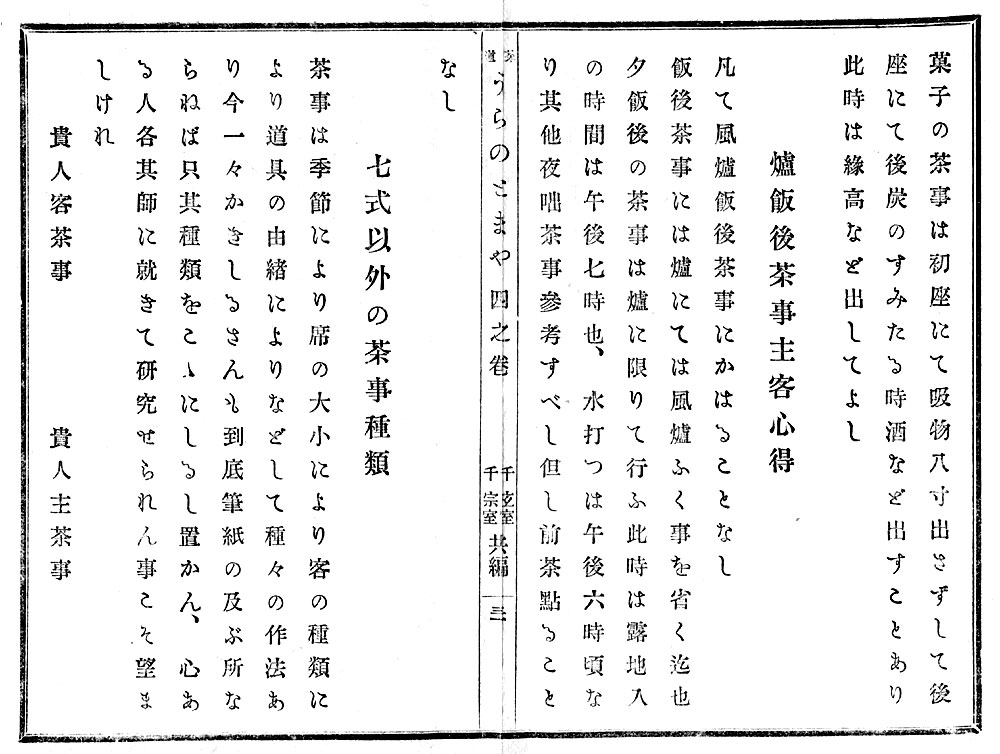 菓子の茶事は初座にて吸物八寸出さずして後
座にて後炭のすみたる時酒など出すことあり
此時は緣高など出してよし
爐飯後茶事主客心得
凡て風爐飯後茶事にかはることなし
飯後茶事には爐にては風爐ふく事を省く迄也
夕飯後の茶事は爐に限りて行ふ此時は露地入
の時間は午後七時也、水打つは午後六時頃な
り其他夜咄茶事參考すべし但し前茶點ること
茶道 うらのとまや 四之卷 千玄室 千宗室 共編 三
なし
七式以外の茶事種類
茶事は季節により席の大小により客の種類に
より道具の由緒によりなどして種々の作法あ
り今一々かきしるさんも到底筆紙の及ぶ所な
らねば只其種類をこゝにしるし置かん、心あ
る人各其師に就きて研究せられん事こそ望ま
しけれ
貴人客茶事 貴人主茶事